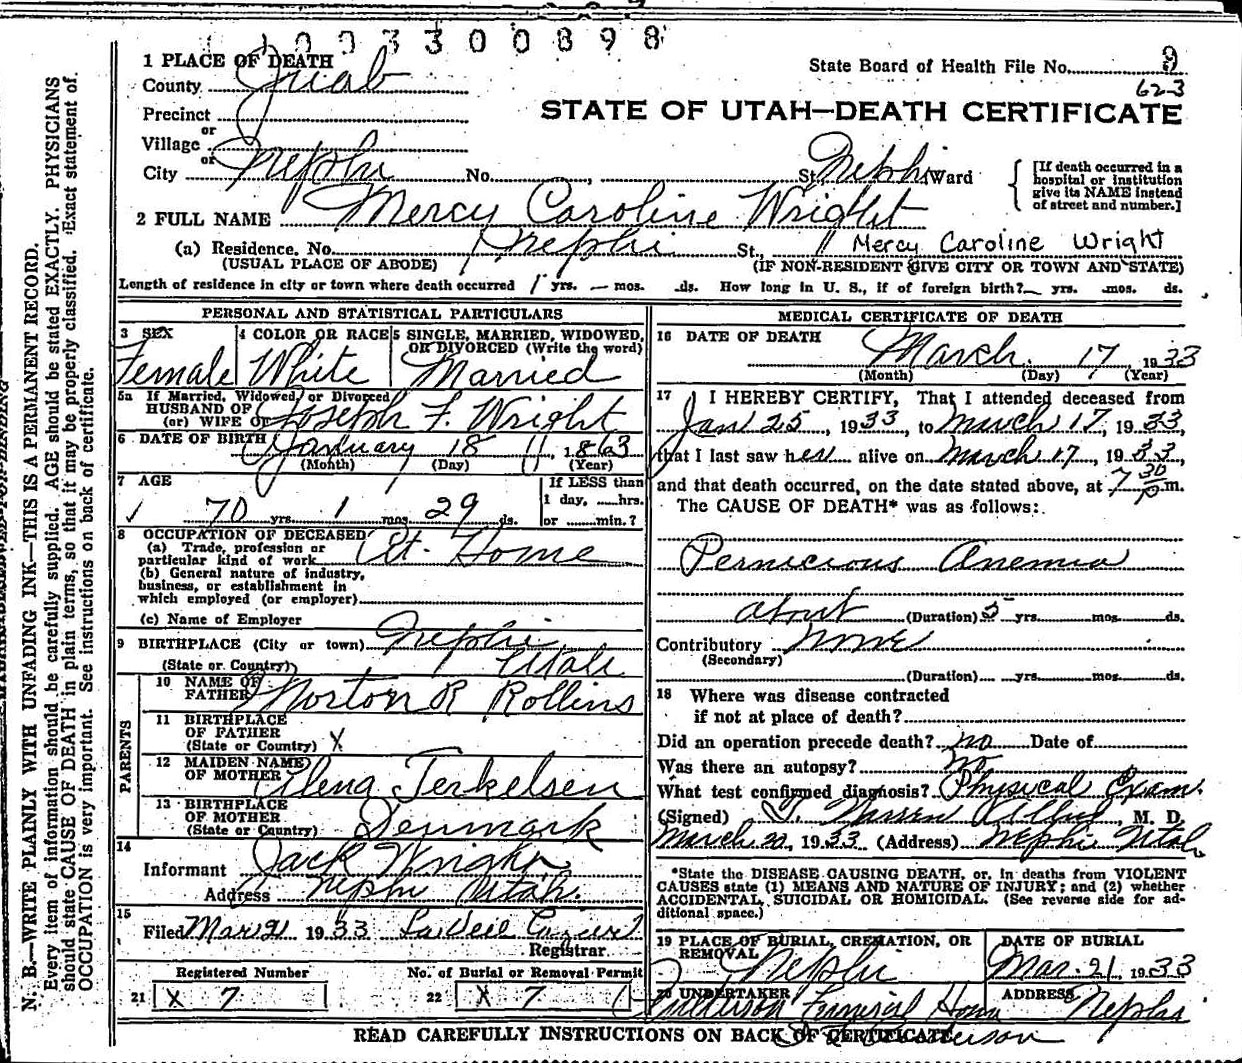 1003300898
1 PLACE OF DEATH
State Board of Health File No. 9
County Juab
623
Precinct
STATE OF UTAH—DEATH CERTIFICATE
or
Village
or
City Nephi No. , St. Nephi Ward
[If death occurred in a hospital or institution give its NAME instead of street and number.]
2 FULL NAME Mercy Caroline Wright
(a) Residence. No. Nephi St., Mercy Caroline Wright
(USUAL PLACE OF ABODE) (IF NON-RESIDENT GIVE CITY OR TOWN AND STATE)
Length of residence in city or town where death occurred yrs. — mos. ds. How long in U. S., if of foreign birth? yrs. mos. ds.
PERSONAL AND STATISTICAL PARTICULARS
3 SEX 4 COLOR OR RACE 5 SINGLE, MARRIED, WIDOWED,
OR DIVORCED (Write the word)
Female White Married
5a If Married, Widowed, or Divorced
HUSBAND OF
(or) WIFE OF Joseph F. Wright
6 DATE OF BIRTH January 18, 1863
(Month) (Day) (Year)
7 AGE If LESS than
1 day, hrs.
70 yrs. 1 mos. 29 ds. or min.?
8 OCCUPATION OF DECEASED
(a) Trade, profession or
particular kind of work At Home
(b) General nature of industry,
business, or establishment in
which employed (or employer)
(c) Name of Employer
9 BIRTHPLACE (City or town) Nephi
(State or Country) Utah
PARENTS
10 NAME OF
FATHER Norton R Rollins
11 BIRTHPLACE
OF FATHER
(State or Country) X
12 MAIDEN NAME
OF MOTHER Elena Terkelsen
13 BIRTHPLACE
OF MOTHER
(State or Country) Denmark
14
Informant Jack Wright
Address Nephi Utah.
15
Filed Mar 21 1933
Registrar
Registered Number No. of Burial or Removal Permit
21 X 7 22 X 7
MEDICAL CERTIFICATE OF DEATH
16 DATE OF DEATH
March 17 1933
(Month) (Day) (Year)
17 I HEREBY CERTIFY, That I attended deceased from
Jan 25, 1933, to March 17, 1933,
that I last saw her alive on March 17, 1933,
and that death occurred, on the date stated above, at 7 30 p m.
The CAUSE OF DEATH* was as follows:
Pernicious Anemia
about (Duration) 5 yrs. mos. ds.
Contributory None
(Secondary)
(Duration) yrs. mos. ds.
18 Where was disease contracted
if not at place of death?
Did an operation precede death? no Date of
Was there an autopsy? no
What test confirmed diagnosis? Physical Exam.
(Signed) M. D.
March 20, 1933 (Address) Nephi Utah
*State the DISEASE CAUSING DEATH, or, in deaths from VIOLENT
CAUSES state (1) MEANS AND NATURE OF INJURY; and (2) whether
ACCIDENTAL, SUICIDAL OR HOMICIDAL. (See reverse side for ad-
ditional space.)
19 PLACE OF BURIAL, CREMATION, OR
REMOVAL Nephi
DATE OF BURIAL
Mar. 21, 1933
20 UNDERTAKER Funeral Home
ADDRESS Nephi
READ CAREFULLY INSTRUCTIONS ON BACK OF CERTIFICATE
N. B.—WRITE PLAINLY WITH UNFADING INK—THIS IS A PERMANENT RECORD.
Every item of information should be carefully supplied. AGE should be stated EXACTLY. PHYSICIANS
should state CAUSE OF DEATH in plain terms, so that it may be properly classified. Exact statement of
OCCUPATION is very important. See instructions on back of certificate.